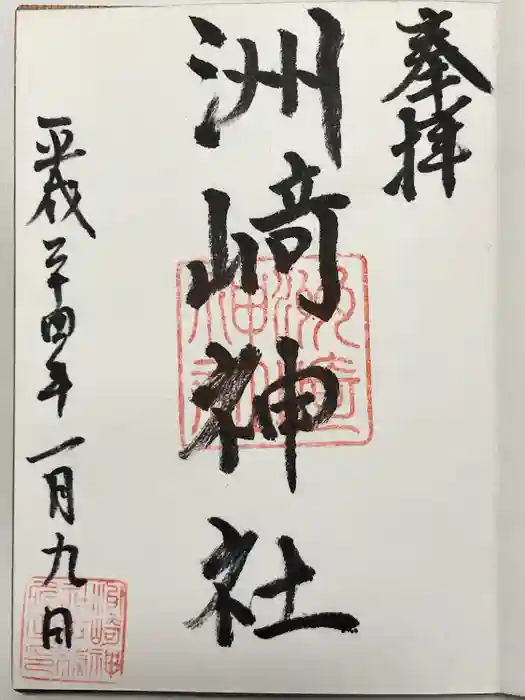 奉拝
洲崎神社
平成二十四年一月九日
洲崎神社